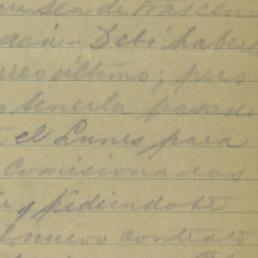 cursea de trascen
dacia - Debí haber
correo último; pero
tenerla pasado
el Lunes para
comisionados
y pidiéndote
el nuevo contrato